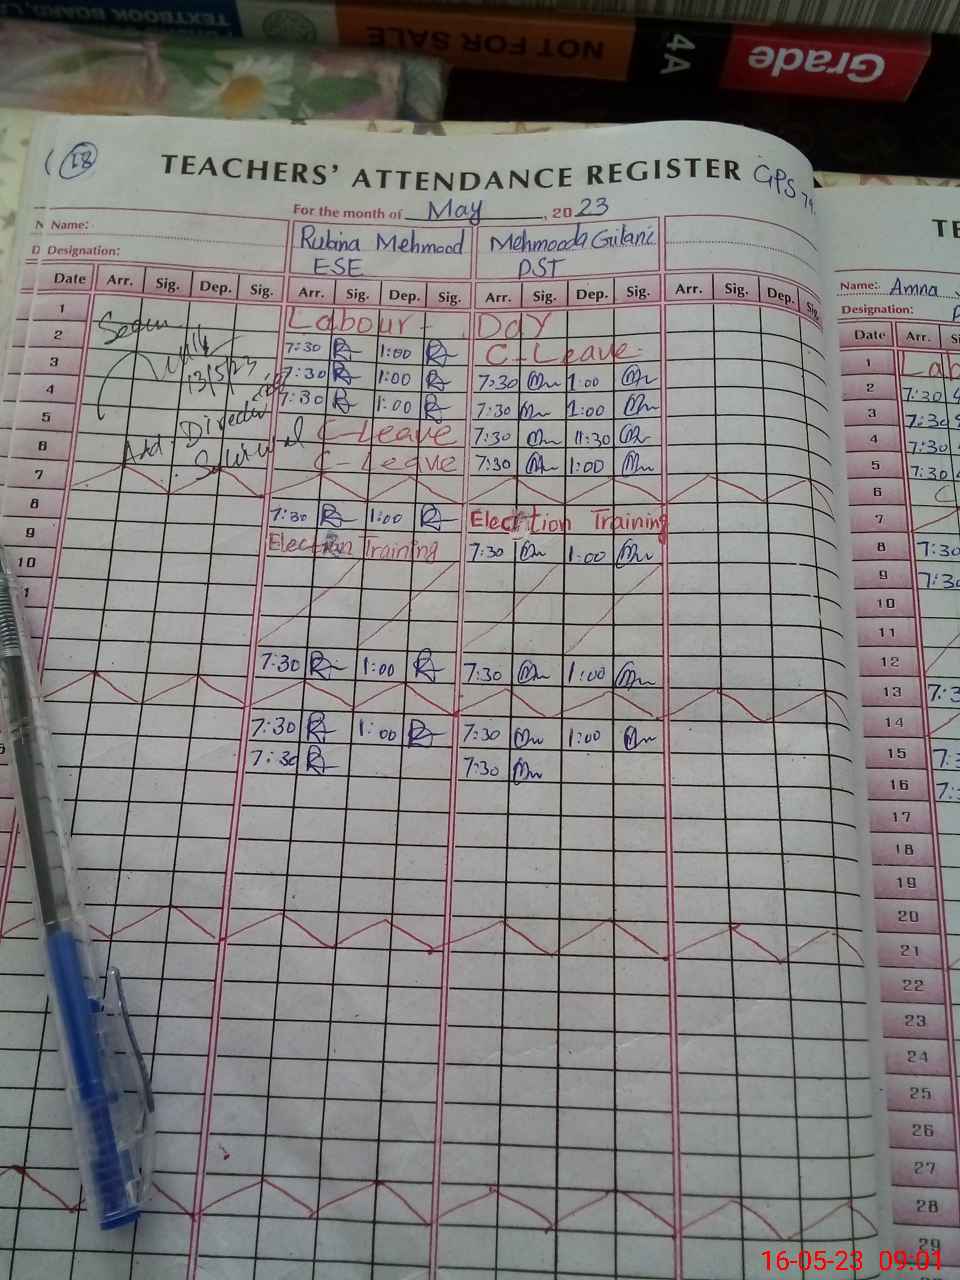 TEXTBOOK BOARD, L
NOT FOR SALE
4A
Grade
18
TEACHERS' ATTENDANCE REGISTER GPS 79.
For the month of May, 2023
Name: Rubina Mehmood Mehmooda Gilani
Designation: ESE PST
Date Arr. Sig. Dep. Sig. Arr. Sig. Dep. Sig. Arr. Sig. Dep. Sig. Arr. Sig. Dep. Sig.
1 Labour Day
2 7:30 1:00 C-Leave
3 7:30 1:00 7:30 1:00
4 7:30 1:00 7:30 1:00
5 C-Leave 7:30 11:30
6 C-Leave 7:30 1:00
7
8 7:30 1:00 Election Training
9 Election Training 7:30 1:00
10
1
7:30 1:00 7:30 1:00
7:30 1:00 7:30 1:00
7:30 7:30
13/5/23
TE
Name: Amna
Designation: P
Date Arr. S
1 Lab
2 7:30
3 7:30
4 7:30
5 7:30
6 C
7
8 7:30
9 7:30
10
11
12
13 7:3
14
15 7:3
16 7:
17
18
19
20
21
22
23
24
25
26
27
28
29
16-05-23 09:01